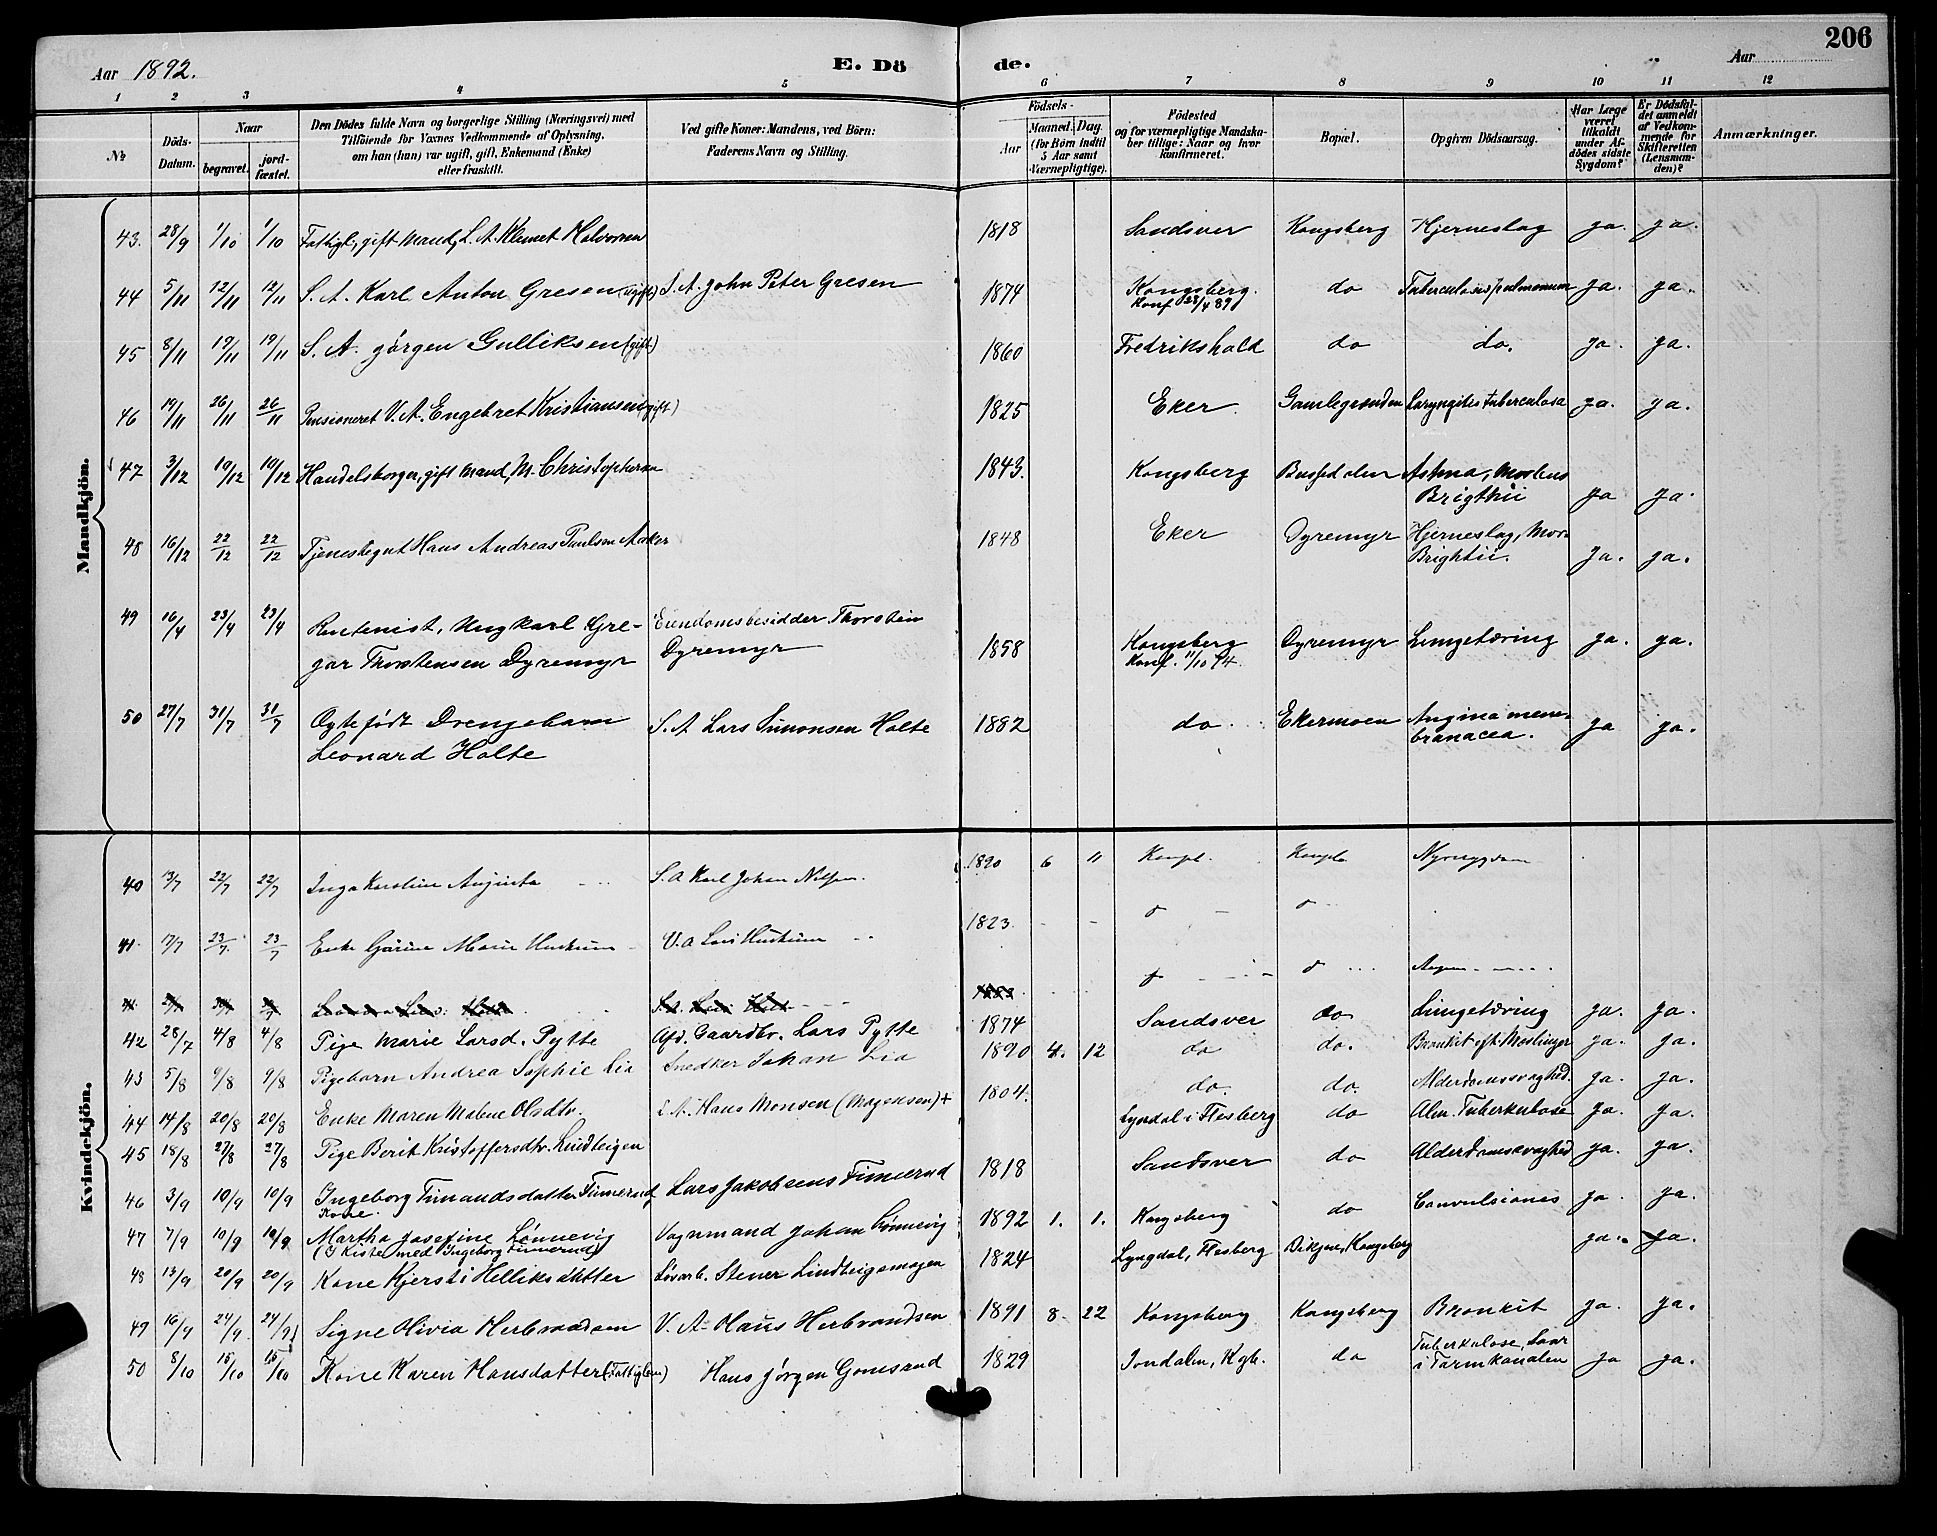 206
Aar 1892.
E. Dö de.
Aar
1 2 3 4 5 6 7 8 9 10 11 12
№
Döds-Datum.
Naar
begravet.
jord-fæstet.
Den Dödes fulde Navn og borgerlige Stilling (Næringsvei) med
Tilföiende for Voxnes Vedkommende af Oplysning,
om han (hun) var ugift, gift, Enkemand (Enke)
eller fraskilt.
Ved gifte Koner: Mandens, ved Börn:
Faderens Navn og Stilling.
Födsels-
Aar
Maaned. Dag.
(for Börn indtil
5 Aar samt
Værnepligtige).
Födested
og for værnepligtige Mandska-
ber tillige: Naar og hvor
konfirmeret.
Bopæl.
Opgiven Dödsaarsag.
Har Læge
været
tilkaldt
under Af-
dödes sidste
Sygdom?
Er Dödsfal-
det anmeldt
af Vedkom-
mende for
Skifteretten
(Lensman-
den)?
Anmærkninger.
Mandkjön.
43. 28/9 1/10 1/10 Fattigl., gift Mand, L. A. Klemet Halvorsen 1818 Sandsver Kongsberg Hjerneslag ja. ja.
44 5/11 12/11 12/11 S. A. Karl Anton Gresen (ugift) S. A. John Peter Gresen 1874 Kongsberg. do Tuberculosis pulmonum ja. ja.
Konf 28/4 89
45 8/11 19/11 19/11 S. A. Jörgen Gulliksen (gift) 1860 Fredrikshald do do. ja. ja.
46 19/11 26/11 26/11 Pensioneret V. A. Engebret Kristiansen (gift) 1825 Eker Gamlegrenden Laryngitis tuberculosa ja. ja.
47 3/12 10/12 10/12 Handelsborger, gift Mand, M. Christophersen 1843. Kongsberg Bussedalen Astma, Morbus
Brigthii ja ja.
48 16/12 22/12 22/12 Tjenestegut Hans Andreas Paulsen Aaker 1848 Eker Dyremyr Hjerneslag, Mor.
Brightii. ja. ja.
49 16/4 23/4 23/4 Rentenist, Ungkarl Gre- Eiendomsbesidder Thorstein
gar Thorstensen Dyremyr Dyremyr 1858 Kongsberg Dyremyr Lungetæring ja. ja.
Konf. 11/10 74.
50 27/7 31/7 31/7 Ægtefödt Drengebarn S. A Lars Simonsen Holte 1882 do. Ekermoen Angina mem-
branacea. ja ja.
Leonard Holte
Kvindekjön.
40 13/7 22/7 22/7 Inga Karoline Augusta S. A Karl Johan Nilsen. 1890 6 11 Kongsb. Kongsb
41. 17/7 23/7 23/7 Enke Marie V. A 1823.
1883
42 28/7 4/8 4/8 Pige Marie Larsd. Pytte Afd. Gaardbr. Lars Pytte 1874 Sandsver do Lungetæring ja. ja.
43 5/8 9/8 9/8 Pigebarn Andrea Sophie Lia Snedker Johan Lia 1890 4. 12 do do. Bronkit eft. Meslinger ja. ja.
44 14/8 20/8 20/8 Enke Maren Malene Olsdtr. S. A. Hans Monsen (Mogensen) + 1804. do. do. Alderdomssvaghed. ja. ja.
45 18/8 27/8 27/8 Pige Berit Kristoffersdtr. Lindteigen Lyndal i Flesberg do Alm. Tuberkulose ja. ja.
46 3/9 10/9 10/9 Ingeborg Timandsdatter Fimerud Lars Jakobsens Fimerud 1818 Sandsver do Alderdomssvaghed ja. ja.
Kone.
47 7/9 10/9 10/9 Martha Josefine Lönnevig Vognmand Johan Lönnevig 1892 1. 1. Kongsberg do Convulsiones ja. ja.
(I Kiste med Ingeborg Fimerud)
48 13/9 20/9 20/9 Kone Kjersti Helliksdatter Lösarb. Stener Lindteigsmogen 1824 Lyngdal, Flesberg Dikjen, Kongsberg ja. ja.
49 16/9 24/9 24/9 Signe Olivia Herbrandsen V. A. Hans Herbrandsen 1891 8. 22 Kongsberg Kongsberg Bronkit ja. ja.
50 8/10 15/10 15/10 Kone Karen Hansdatter (Fattiglem) Hans Jörgen Gomsrud 1829 Jondalen, Kgb. do Tuberkulose, Saar
i Tarmkanalen ja ja.